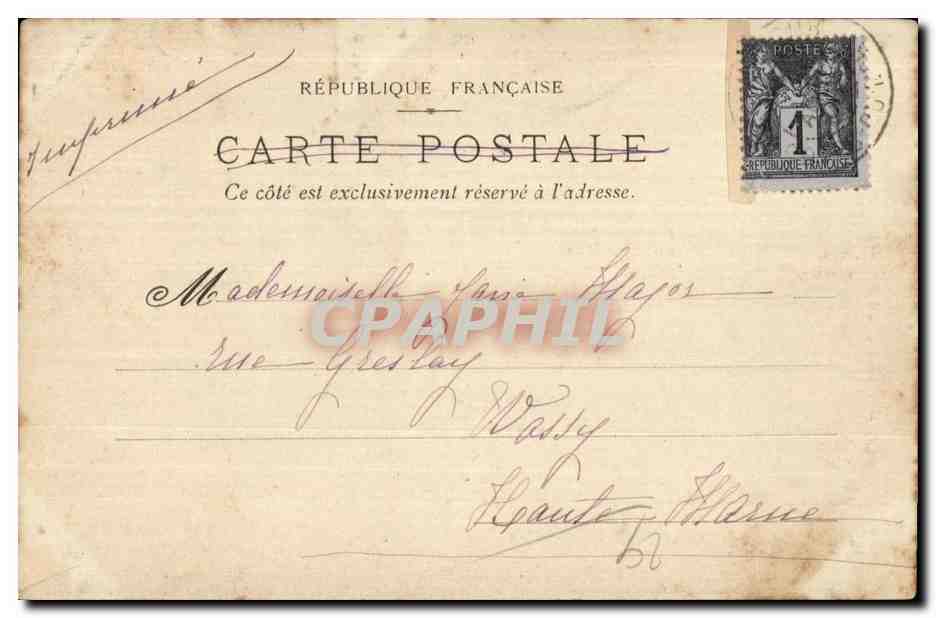 Imprimé
RÉPUBLIQUE FRANÇAISE
CARTE POSTALE
Ce côté est exclusivement réservé à l'adresse.
POSTE
1
RÉPUBLIQUE FRANÇAISE
Mademoiselle Major
rue
Wassy
Haute Marne
CPAPHIL